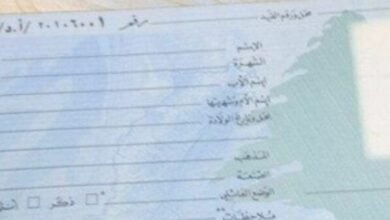 محل ورقم القيد رقم ٢٠١٠٦٠٠٩ /أ.د/
الإسم
الشهرة
إسم الأب
إسم الأم وشهرتها
محل وتاريخ الولادة
المذهب
الوضع العائلي
□ ذكر □